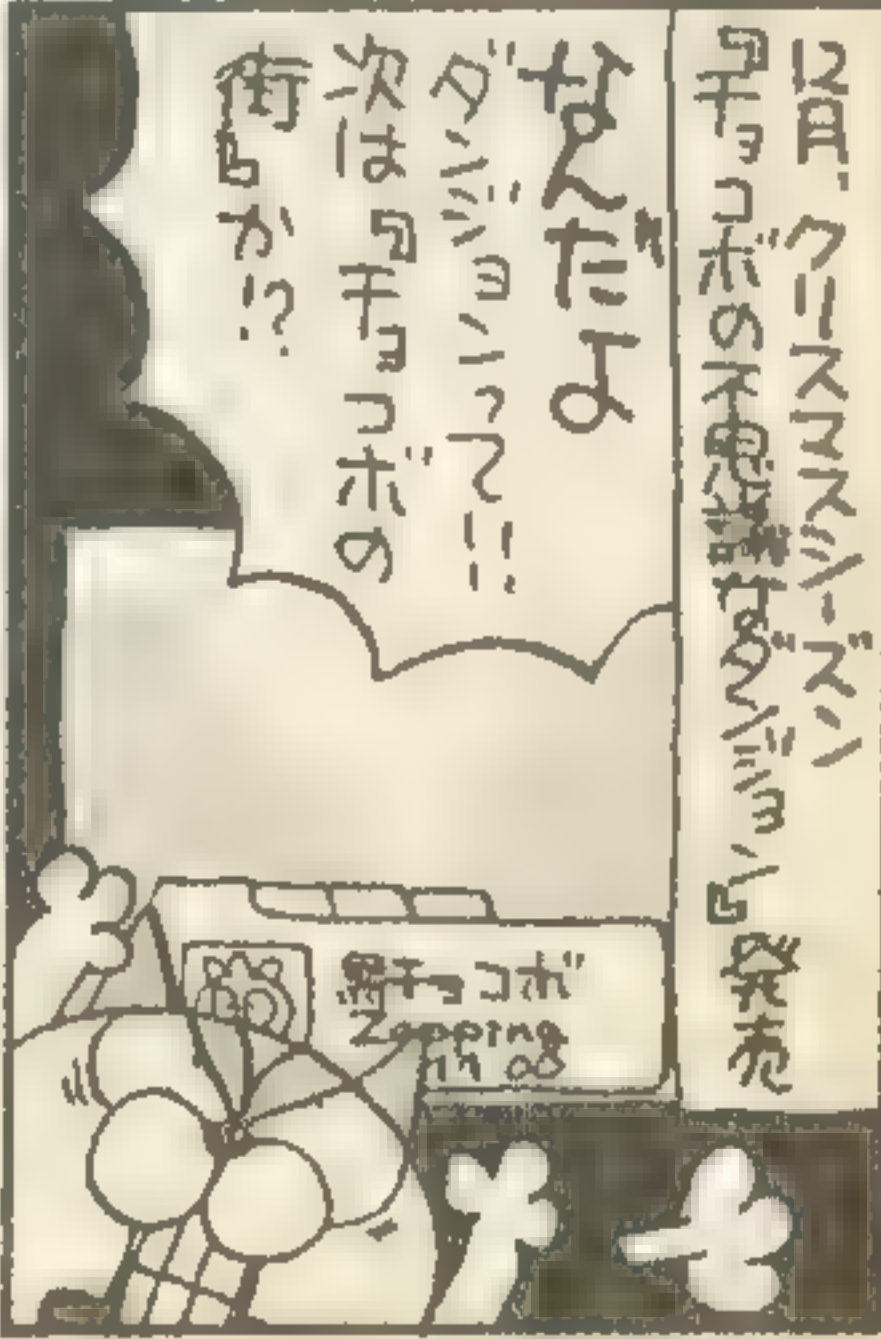 12月、クリスマスシーズン
『チョコボの不思議なダンジョン』発売
なんだよ
ダンジョンって!!
次は『チョコボの
街』か!?
チョコボ
Zapping
08